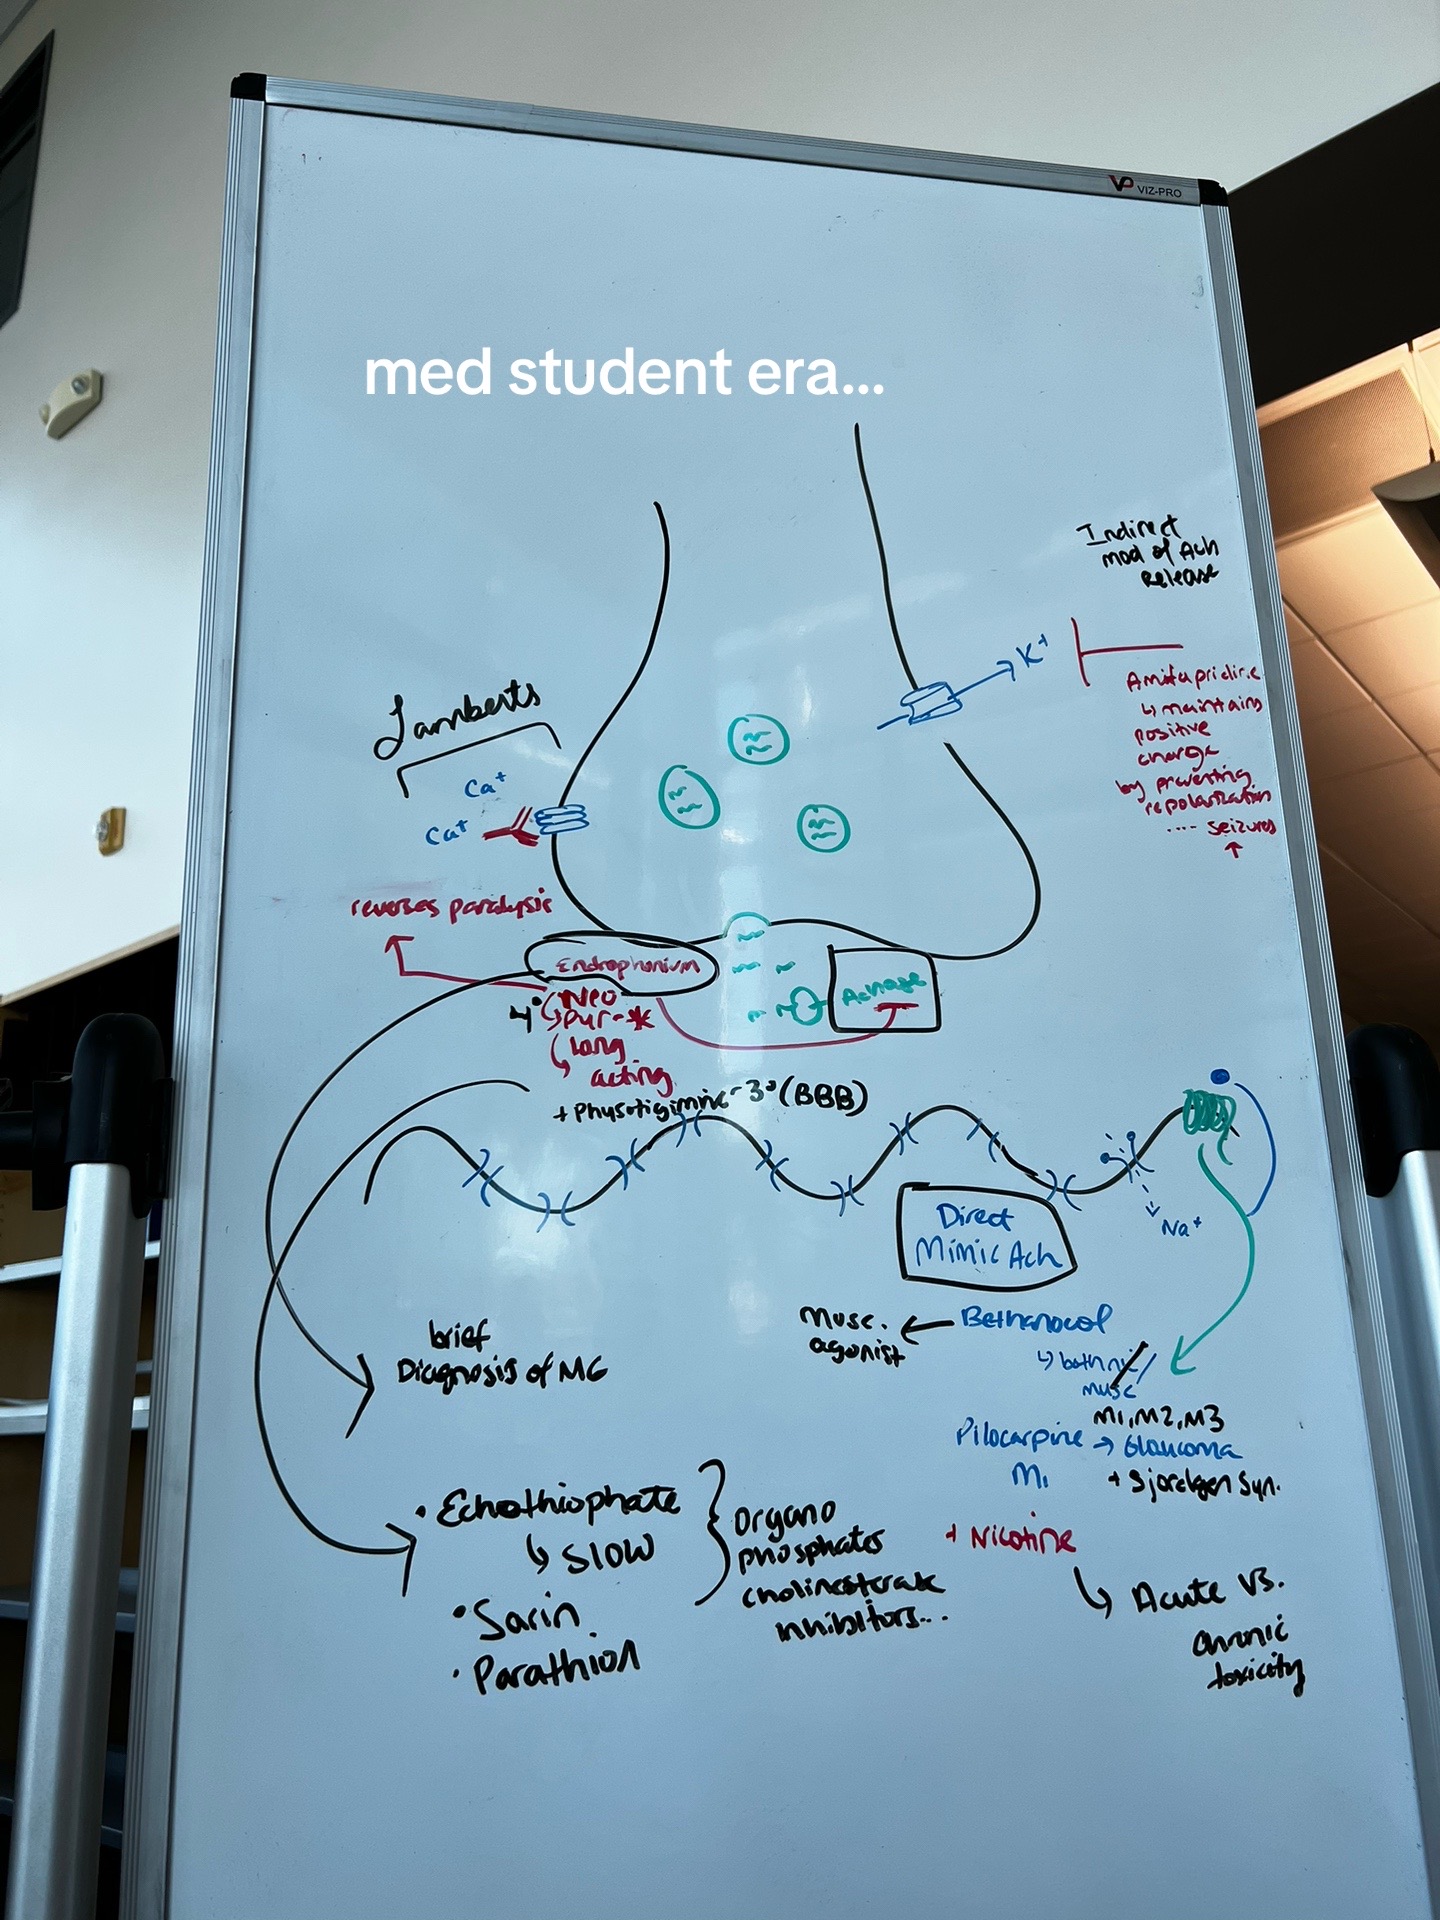 VP VIZ-PRO
med student era...
Indirect
mod of Ach
Release
K+
Amifapridine
↳ maintains
positive
charge
by preventing
repolarization
.... seizures
↑
Lamberts
Ca+
Ca+
reverses paralysis
Endrophonium
Achase
4° Neo
↳ pyr-*
↳ long
acting
+ Physotigimine - 3° (BBB)
Na+
Direct
Mimic Ach
brief
Diagnosis of MG
Musc. ← Bethanocol
agonist
↳ both nic/
musc
M1, M2, M3
Pilocarpine → Glaucoma
M1 + Sjordgen Syn.
• Echothiophate
↳ SLOW
• Sarin
• Parathion
Organo
phosphates
cholinesterase
inhibitors...
+ Nicotine
↳ Acute vs.
chronic
toxicity